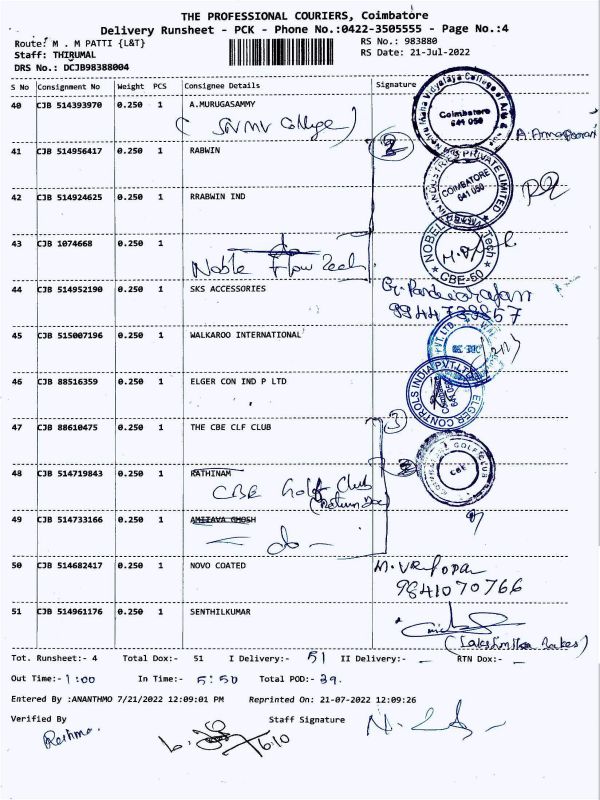 THE PROFESSIONAL COURIERS, Coimbatore
Delivery Runsheet - PCK - Phone No.:0422-3505555 - Page No.:4
Route: M . M PATTI {L&T}
RS No.: 983880
Staff: THIRUMAL
RS Date: 21-Jul-2022
DRS No.: DCJB98388004
S No Consignment No Weight PCS Consignee Details Signature
40 CJB 514393970 0.250 1 A.MURUGASAMMY
( SNMV College )
Coimbatore
641 050
41 CJB 514956417 0.250 1 RABWIN
2
INDUSTRIES PRIVATE LIMITED
COIMBATORE
641 050
42 CJB 514924625 0.250 1 RRABWIN IND
43 CJB 1074668 0.250 1
do
Noble Flow Tech
NOBEL Tech
CBE-50
44 CJB 514952190 0.250 1 SKS ACCESSORIES
45 CJB 515007196 0.250 1 WALKAROO INTERNATIONAL
PVT. LTD.
46 CJB 88516359 0.250 1 ELGER CON IND P LTD
ELGER CONTROLS INDIA PVT LTD
47 CJB 88610475 0.250 1 THE CBE CLF CLUB
3
48 CJB 514719843 0.250 1 RATHINAM
CBE Golf Club
GOLF CLUB
CBE
49 CJB 514733166 0.250 1
- do -
50 CJB 514682417 0.250 1 NOVO COATED
9841070766
51 CJB 514961176 0.250 1 SENTHILKUMAR
Tot. Runsheet:- 4 Total Dox:- 51 I Delivery:- 51 II Delivery:- - RTN Dox:- -
Out Time:- 1:00 In Time:- 5:50 Total POD:- 39.
Entered By :ANANTHMO 7/21/2022 12:09:01 PM Reprinted On: 21-07-2022 12:09:26
Verified By Staff Signature